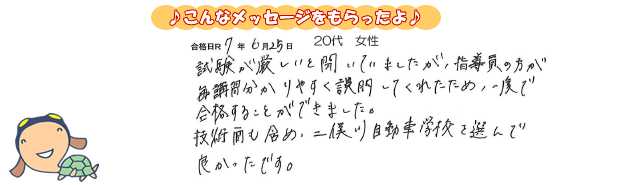 ♪こんなメッセージをもらったよ♪
合格日R 7 年 6月25日 20代 女性
試験が厳しいと聞いていましたが、指導員の方が
毎講習分かりやすく説明してくれたため、一度で
合格することができました。
技術面も含め、二俣川自動車学校を選んで
良かったです。